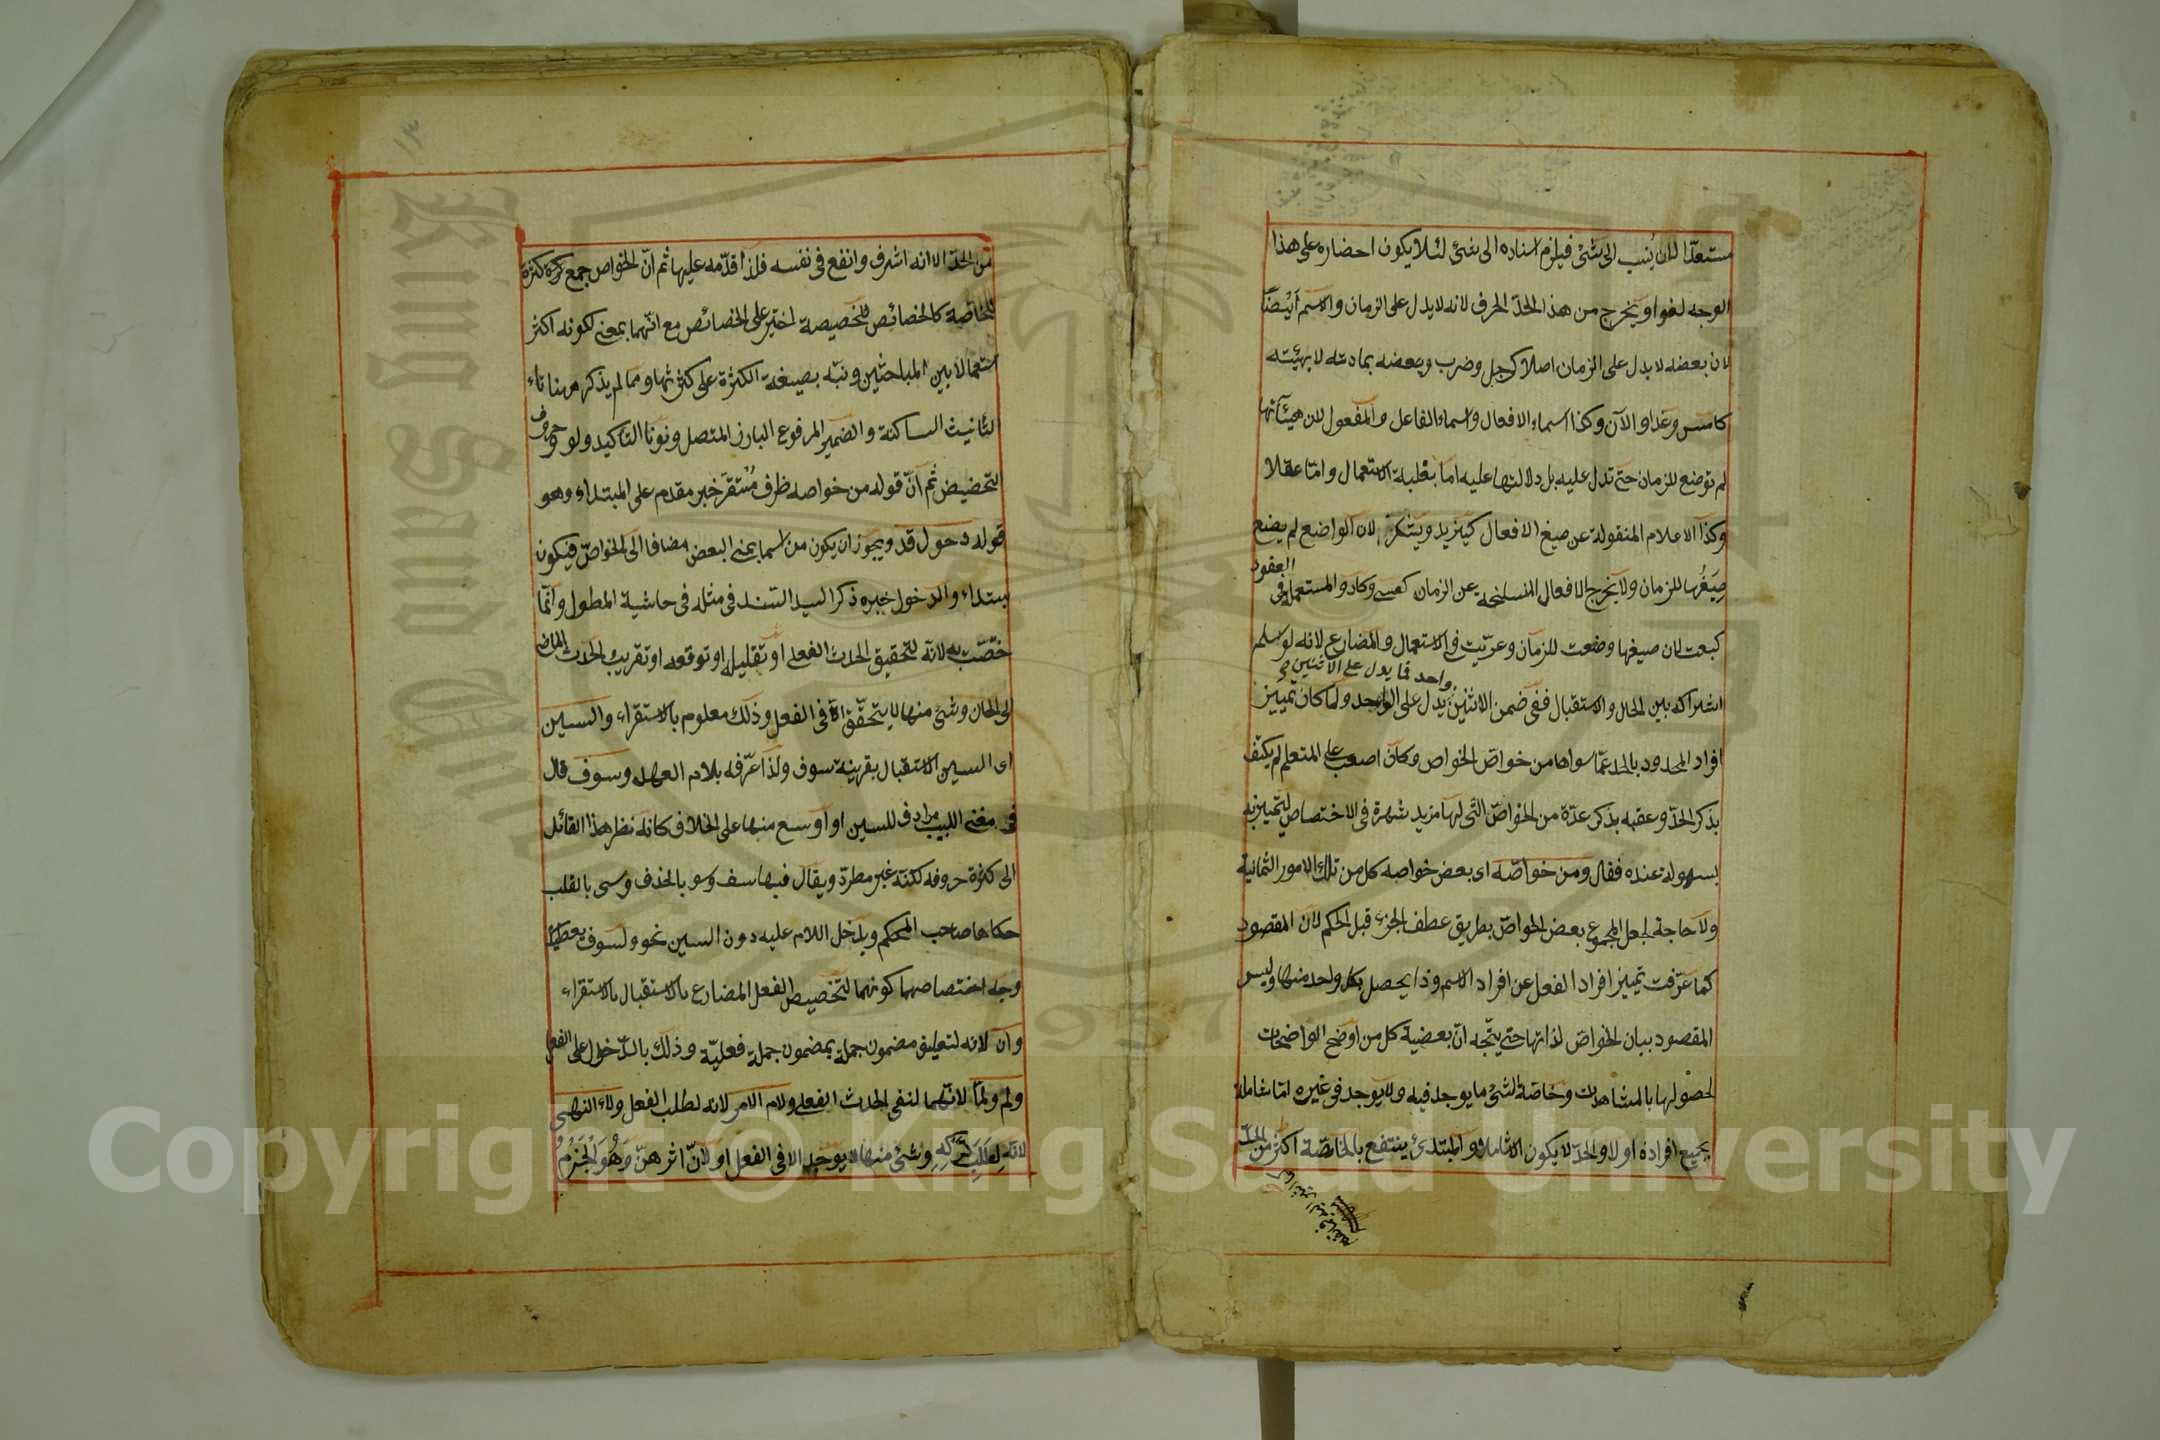 مستعدّا لان يُنسب الى شئ فيلزم اسناده الى شئ لئلا يكون احضاره على هذا
الوجه لغوا ويخرج من هذا الحدّ الحرف لانه لا يدل على الزمان والاسم ايضًا
لان بعضه لا يدل على الزمان اصلا كرجل وضرب وبعضه بمادته لا بهيئته
كامس وغدا والآن وكذا اسماء الافعال واسماء الفاعل والمفعول لان هيئآتها
لم توضع للزمان حتى تدل عليه بل دلالتها عليه اما بغلبة الاستعمال وامّا عقلا
وكذا الاعلام المنقولة عن صيغ الافعال كيزيد ويشكر لان الواضع لم يضع
صِيَغُها للزمان ولا يخرج الافعال المنسلخة عن الزمان كعسى وكاد والمستعملة فى العقود
كبعت لان صيغها وضعت للزمان وعرّيت فى الاستعمال والمضارع لانه لو سلم
اشتراكه بين الحال والاستقبال ففى ضمن الاثنين يدل على الواحد ولما كان تمييز
واحد فما يدل على الاثنين
افراد المحدود بالحد عمّا سواها من خواصّ الخواص وكان اصعب على المتعلم لم يكتف
بذكر الحدّ وعقبه بذكر عدّة من الخواصّ التى لها مزيد شهرة فى الاختصاص ليتميز به
بسهولة عنده فقال ومن خواصّه اى بعض خواصه كل من تلك الامور الثمانية
ولا حاجة لجعل المجموع بعض الخواصّ بطريق عطف الجزء قبل الحكم لان المقصود
كما عرفت تمييز افراد الفعل عن افراد الاسم وذا يحصل بكل واحد منها وليس
المقصود ببيان الخواصّ لذاتها حتى يتّجه انّ بعضية كل من اوضح الواضحات
لحصولها بالمشاهدات وخاصّة الشئ ما يوجد فيه ولا يوجد فى غيره امّا شاملة
بجميع افراده او لا والحدّ لا يكون الا شاملا والمبتدى ينتفع بالخاصّة اكثر من الحدّ
١٣
من الحدّ الا انه اشرف وانفع فى نفسه فلذا قدّمه عليها ثم انّ الخواص جمع كثرة
للخاصّة كالخصائص للخصيصة اختير على الخصائص مع انّهما بمعنى لكونه اكثر
استعمالا بين المباحثين ونبّه بصيغة الكثرة على كثرتها ومما لم يذكر هنا تاء
التأنيث الساكنة والضمير المرفوع البارز المتصل ونونا التاكيد ولو وحروف
التحضيض ثم انّ قوله من خواصه ظرف مُستقرّ خبر مقدم على المبتداء وهو
قوله دخول قد ويجوز ان يكون من اسما بمعنى البعض مضافا الى الخواصّ فيكون
مبتداء والدخول خبره ذكر السيد السّند فى مثله فى حاشية المطول وانّما
خصّت به لانّه لتحقيق الحدث الفعلى او تقليله او توقعه او تقريب الحدث الماضى
الى الحال وشئ منها لا يتحقّق الاّ فى الفعل وذلك معلوم بالاستقراء والسين
اى السين الاستقبال بقرينة سوف ولذا عرّفه بلام العهد وسوف قال
فى مغنى اللبيب مرادف للسين او اوسع منها على الخلاف كانه نظر هذا القائل
الى كثرة حروفه لكنّه غير مطردّ ويقال فيها سف وسو بالحذف وسى بالقلب
حكاها صاحب المحكم ويدخل اللام عليه دون السين نحو ولسوف يعطيك
وجه اختصاصهما كونهما لتخصيص الفعل المضارع بالاستقبال بالاستقراء
وان لانه لتعليق مضمون جملة بمضمون جملة فعليّة وذلك بالدّخول على الفعل
ولم ولمّا لانّهما لنفى الحدث الفعلى ولام الامر لانه لطلب الفعل ولاء النهى
لانّه لِطَلَبِ تَرْكِهِ وشئ منها لا يوجد الا فى الفعل او لانّ اثرهنّ وَهُوَ الْجَزْمُ